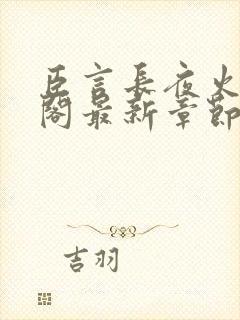 臣言長夜火
閣最新章節
吉羽